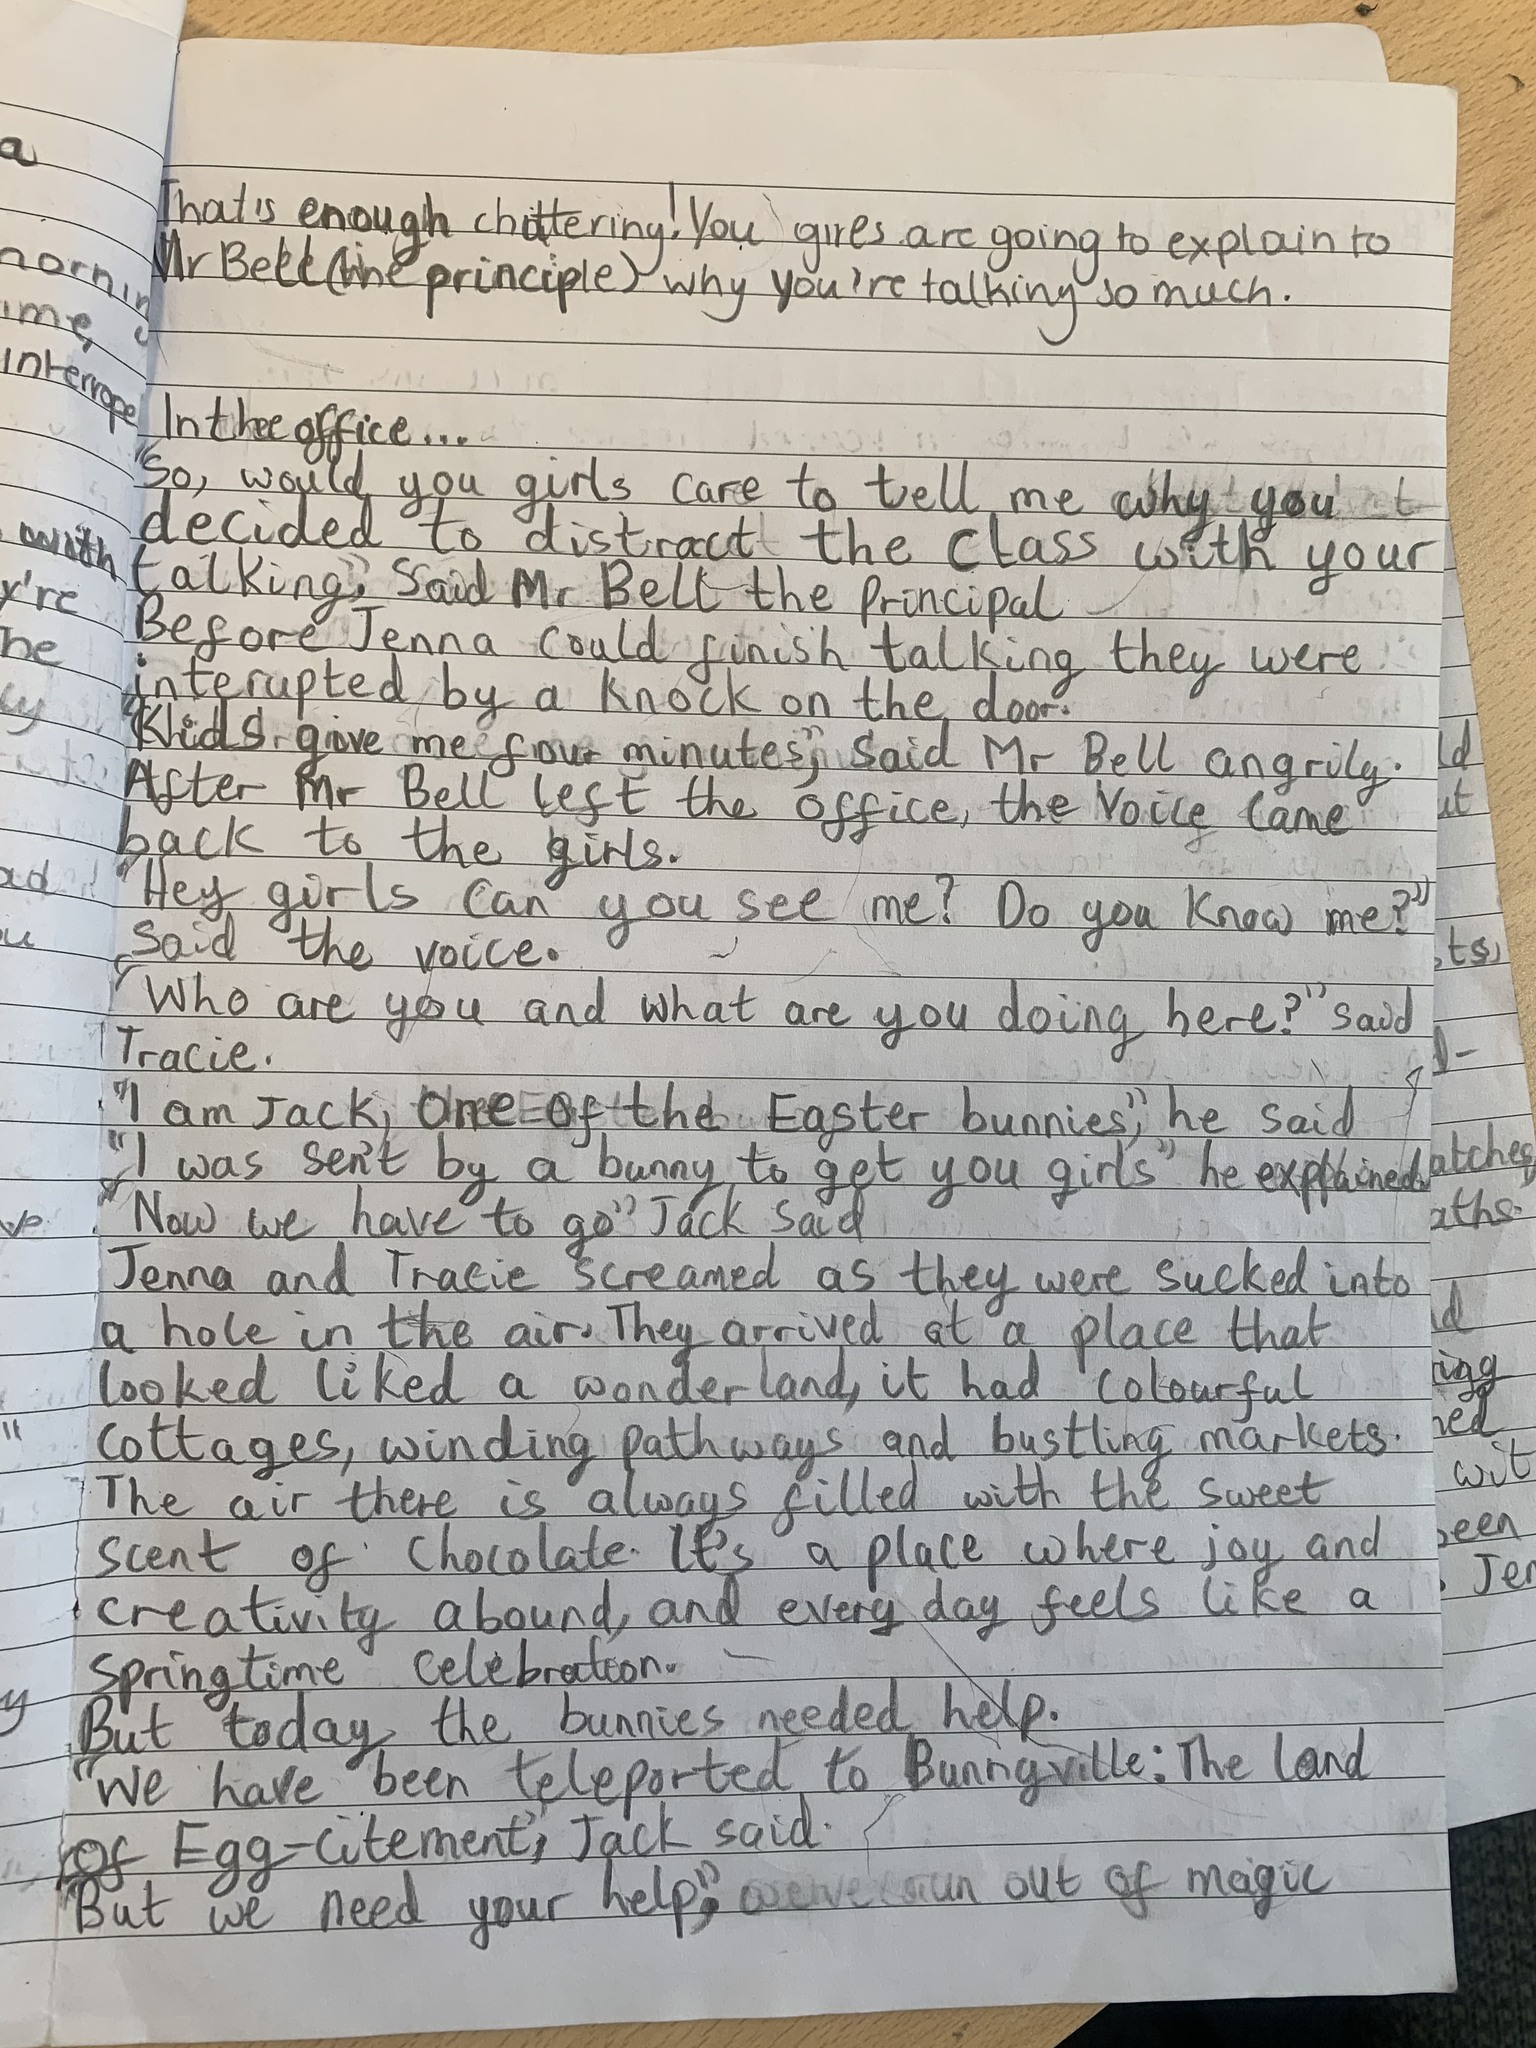 That's enough chattering! You gires are going to explain to
Mr Bell (the principle) why you're talking so much.
In the office...
"So, would you girls care to tell me why you
decided to distract the class with your
talking," Said Mr Bell the principal
Before Jenna could finish talking they were
interupted by a knock on the door.
"Kids give me four minutes," said Mr Bell angrily.
After Mr Bell left the office, the voice came
back to the girls.
"Hey girls can you see me? Do you know me?"
said the voice.
"Who are you and what are you doing here?" said
Tracie.
"I am Jack, one of the Easter bunnies," he said
"I was sent by a bunny to get you girls" he explained.
"Now we have to go" Jack said
Jenna and Tracie screamed as they were sucked into
a hole in the air. They arrived at a place that
looked liked a wonderland, it had colourful
cottages, winding pathways and bustling markets.
The air there is always filled with the sweet
scent of chocolate. It's a place where joy and
creativity abound, and every day feels like a
springtime celebration.
But today, the bunnies needed help.
"We have been teleported to Bunnyville: The land
of Egg-citement", Jack said.
"But we need your help," run out of magic
a
interrope
with
y're
he
y
"
atches
aths.
wit
been